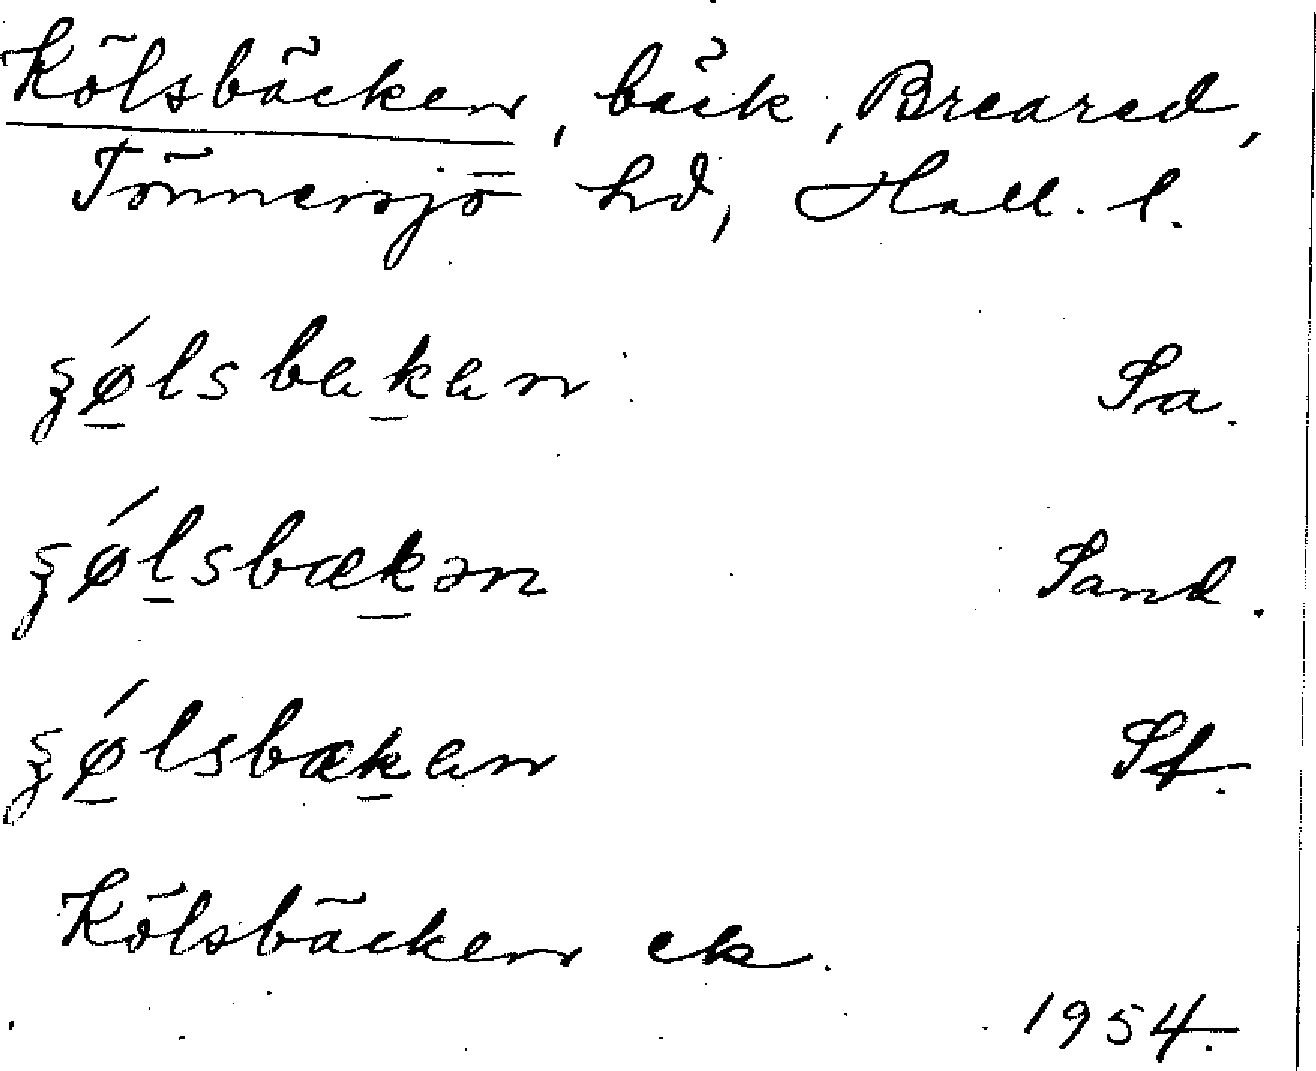 Kölsbäcken, bäck, Breared,
Tönnersjö hd, Hall. l.
ʒǿlsbakan Sa.
ʒǿlsbækən Sand.
ʒǿlsbækan Sf.
Kölsbäcken ek.
1954.